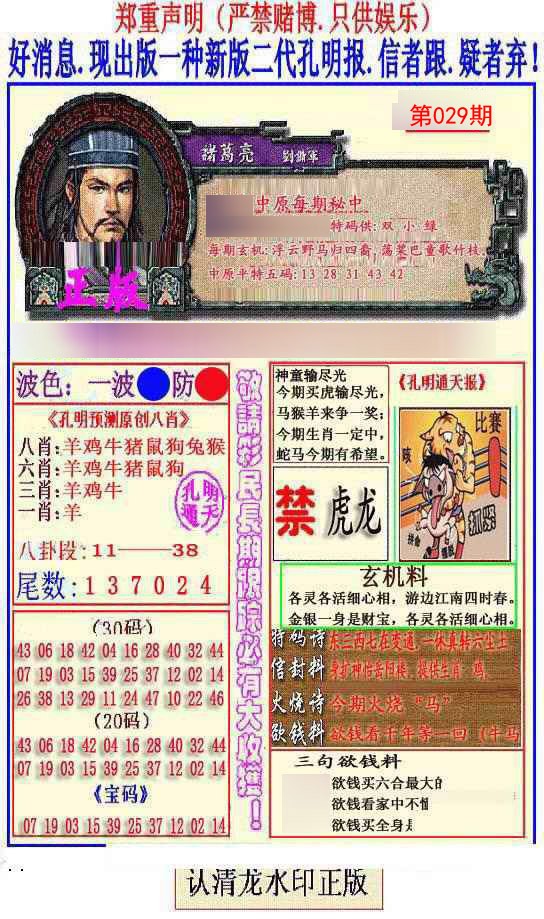 郑重声明（严禁赌博.只供娱乐）
好消息.现出版一种新版二代孔明报.信者跟.疑者弃！
第029期
諸葛亮
中原每期秘中
特码供:双 小 绿
每期玄机:浮云野马归四裔,荡桨巴童歌竹枝.
中原平特五码:13 28 31 43 42
正版
波色：一波 防
《孔明预测原创八肖》
八肖:羊鸡牛猪鼠狗兔猴
六肖:羊鸡牛猪鼠狗
三肖:羊鸡牛
一肖:羊
孔明
通天
八卦段:11——38
尾数:137024
(30码)
43 06 18 42 04 16 28 40 32 44
07 19 03 15 39 25 37 12 02 14
26 38 13 29 11 24 47 10 22 46
(20码)
43 06 18 42 04 16 28 40 32 44
07 19 03 15 39 25 37 12 02 14
《宝码》
07 19 03 15 39 25 37 12 02 14
敬請彩民長期跟踪必有大收獲！
神童输尽光
今期买虎输尽光，
马猴羊来争一奖；
今期生肖一定中，
蛇马今期有希望。
《孔明通天报》
比赛
抓奖
禁 虎龙
玄机料
各灵各活细心相，游边江南四时春。
金银一身是财宝，各灵各活细心相。
特码诗 东三西七在变通,一休真转六尘土
信封料
火烧诗 今期火烧“马”
欲钱料 欲钱看千年等一回（牛马
三句欲钱料
欲钱买六合最大的
欲钱看家中不
欲钱买全身
认清龙水印正版